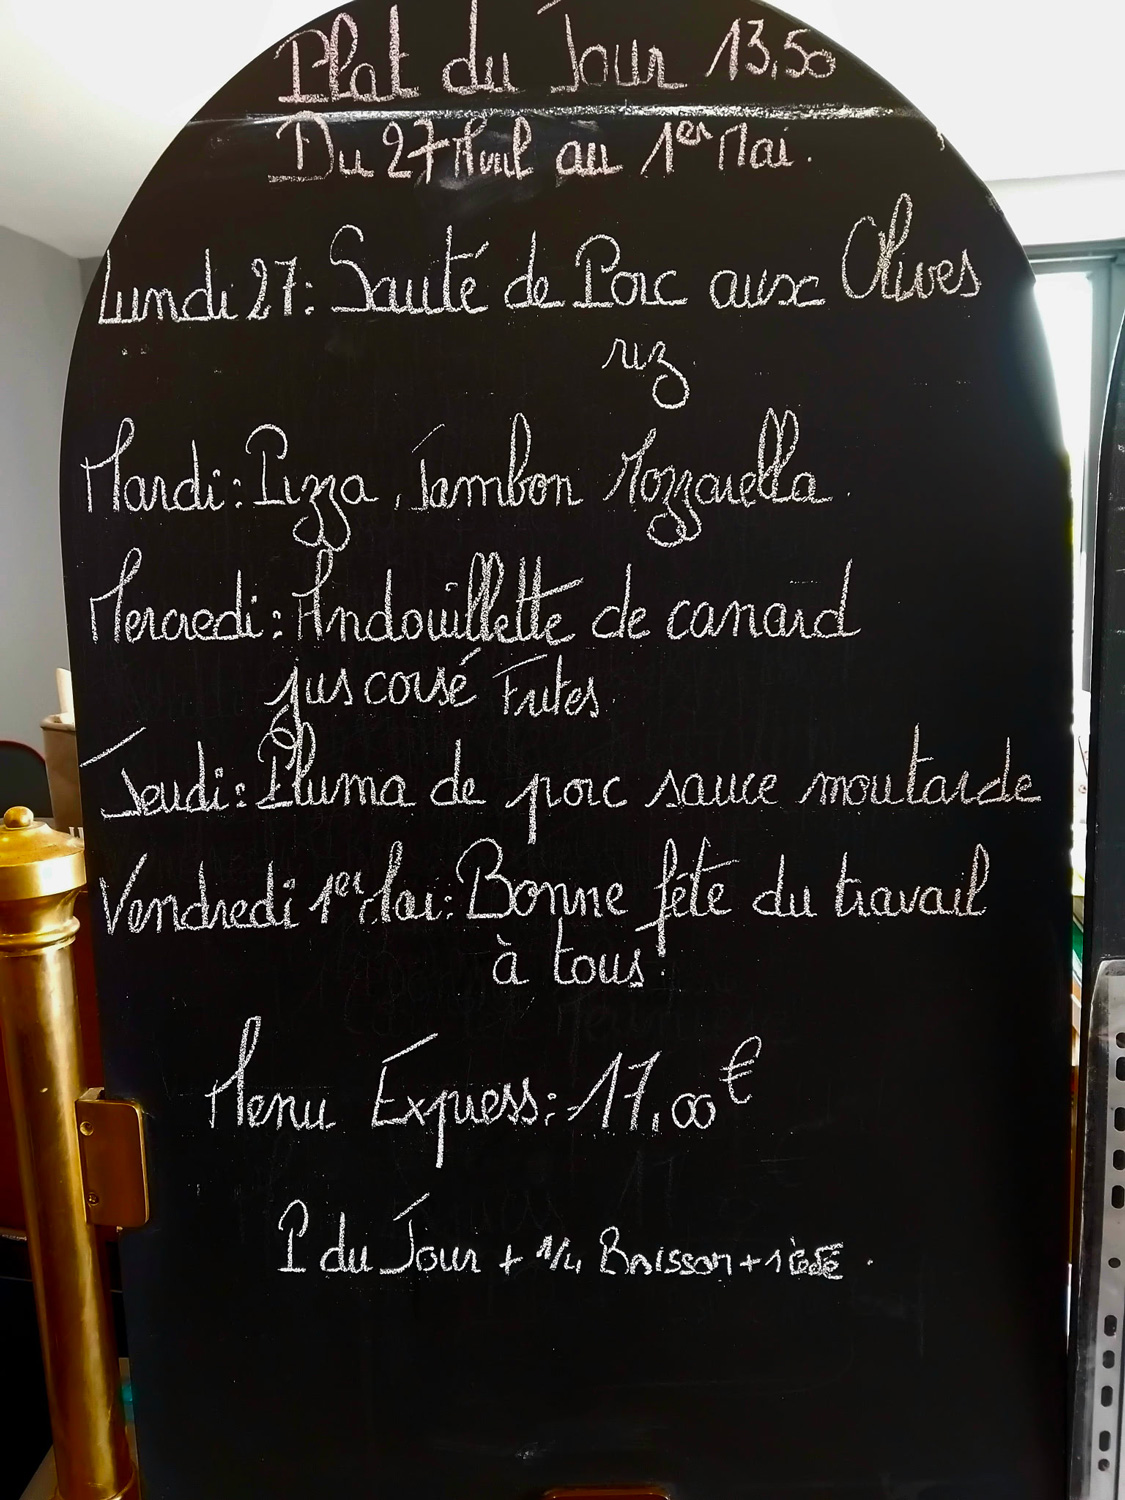 Plat du Jour 13,50
Du 27 Avril au 1er Mai.
Lundi 27: Sauté de Porc aux Olives
riz
Mardi: Pizza, Jambon Mozzarella.
Mercredi: Andouillette de canard
jus corsé Frites.
Jeudi: Pluma de porc sauce moutarde
Vendredi 1er Mai: Bonne fête du travail
à tous.
Menu Express: 17,00€
P du Jour + 1/4 Boisson + 1